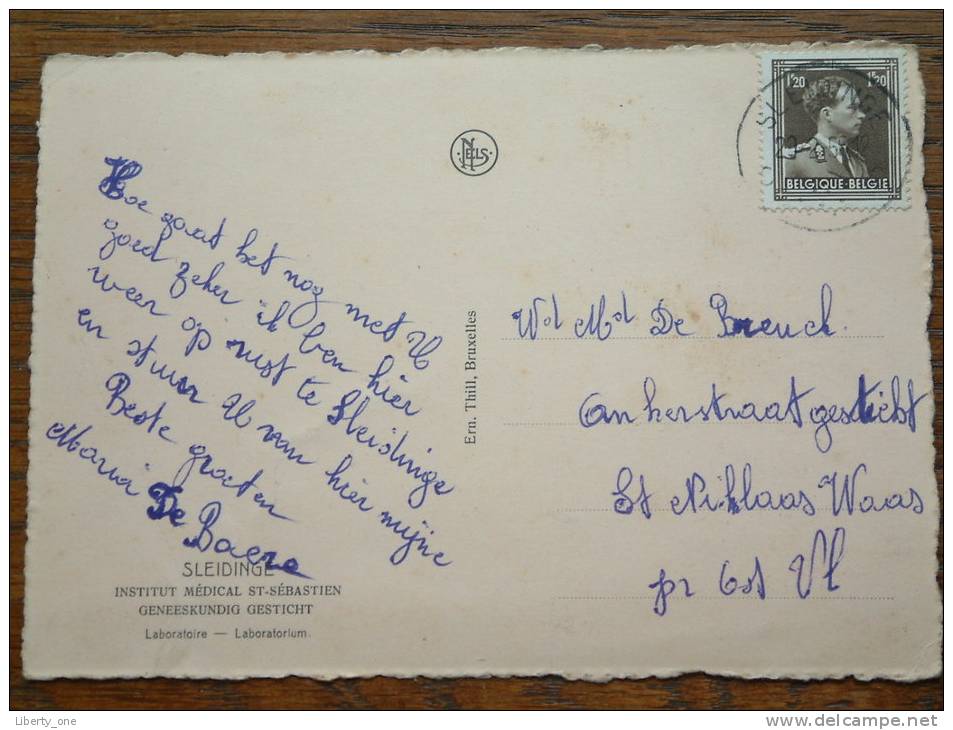 Hoe gaat het nog met U
goed zeker ik ben hier
weer op rust te Sleidinge
en stuur U van hier mijne
Beste groeten
Maria De Baere
SLEIDINGE
INSTITUT MÉDICAL ST-SÉBASTIEN
GENEESKUNDIG GESTICHT
Laboratoire — Laboratorium.
NELS
Ern. Thill, Bruxelles
1F20 1F20
BELGIQUE-BELGIE
SLEIDINGE
Wd Md De Breuck.
Ankerstraat gesticht
St Niklaas Waas
pr Ost Vl
Liberty_one
www.delcampe.net